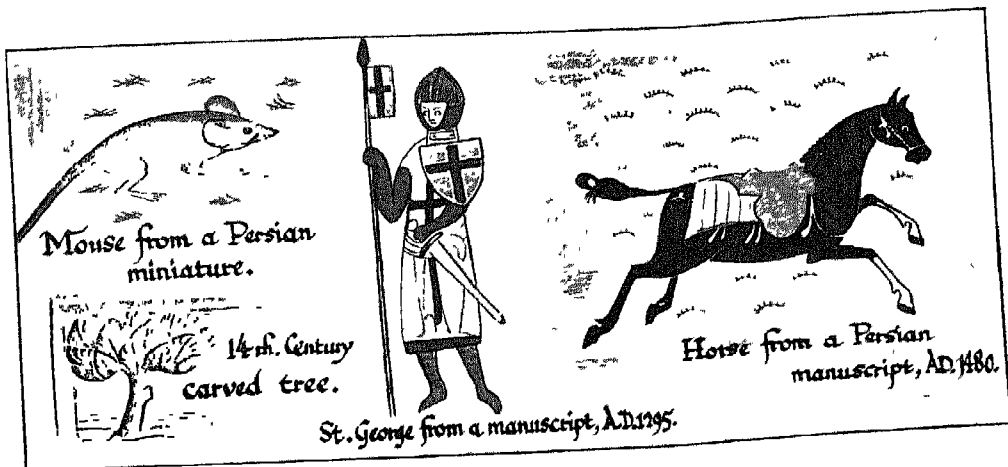 Mouse from a Persian
miniature.
14th. Century
carved tree.
St. George from a manuscript, A.D.1295.
Horse from a Persian
manuscript, A.D. 1480.